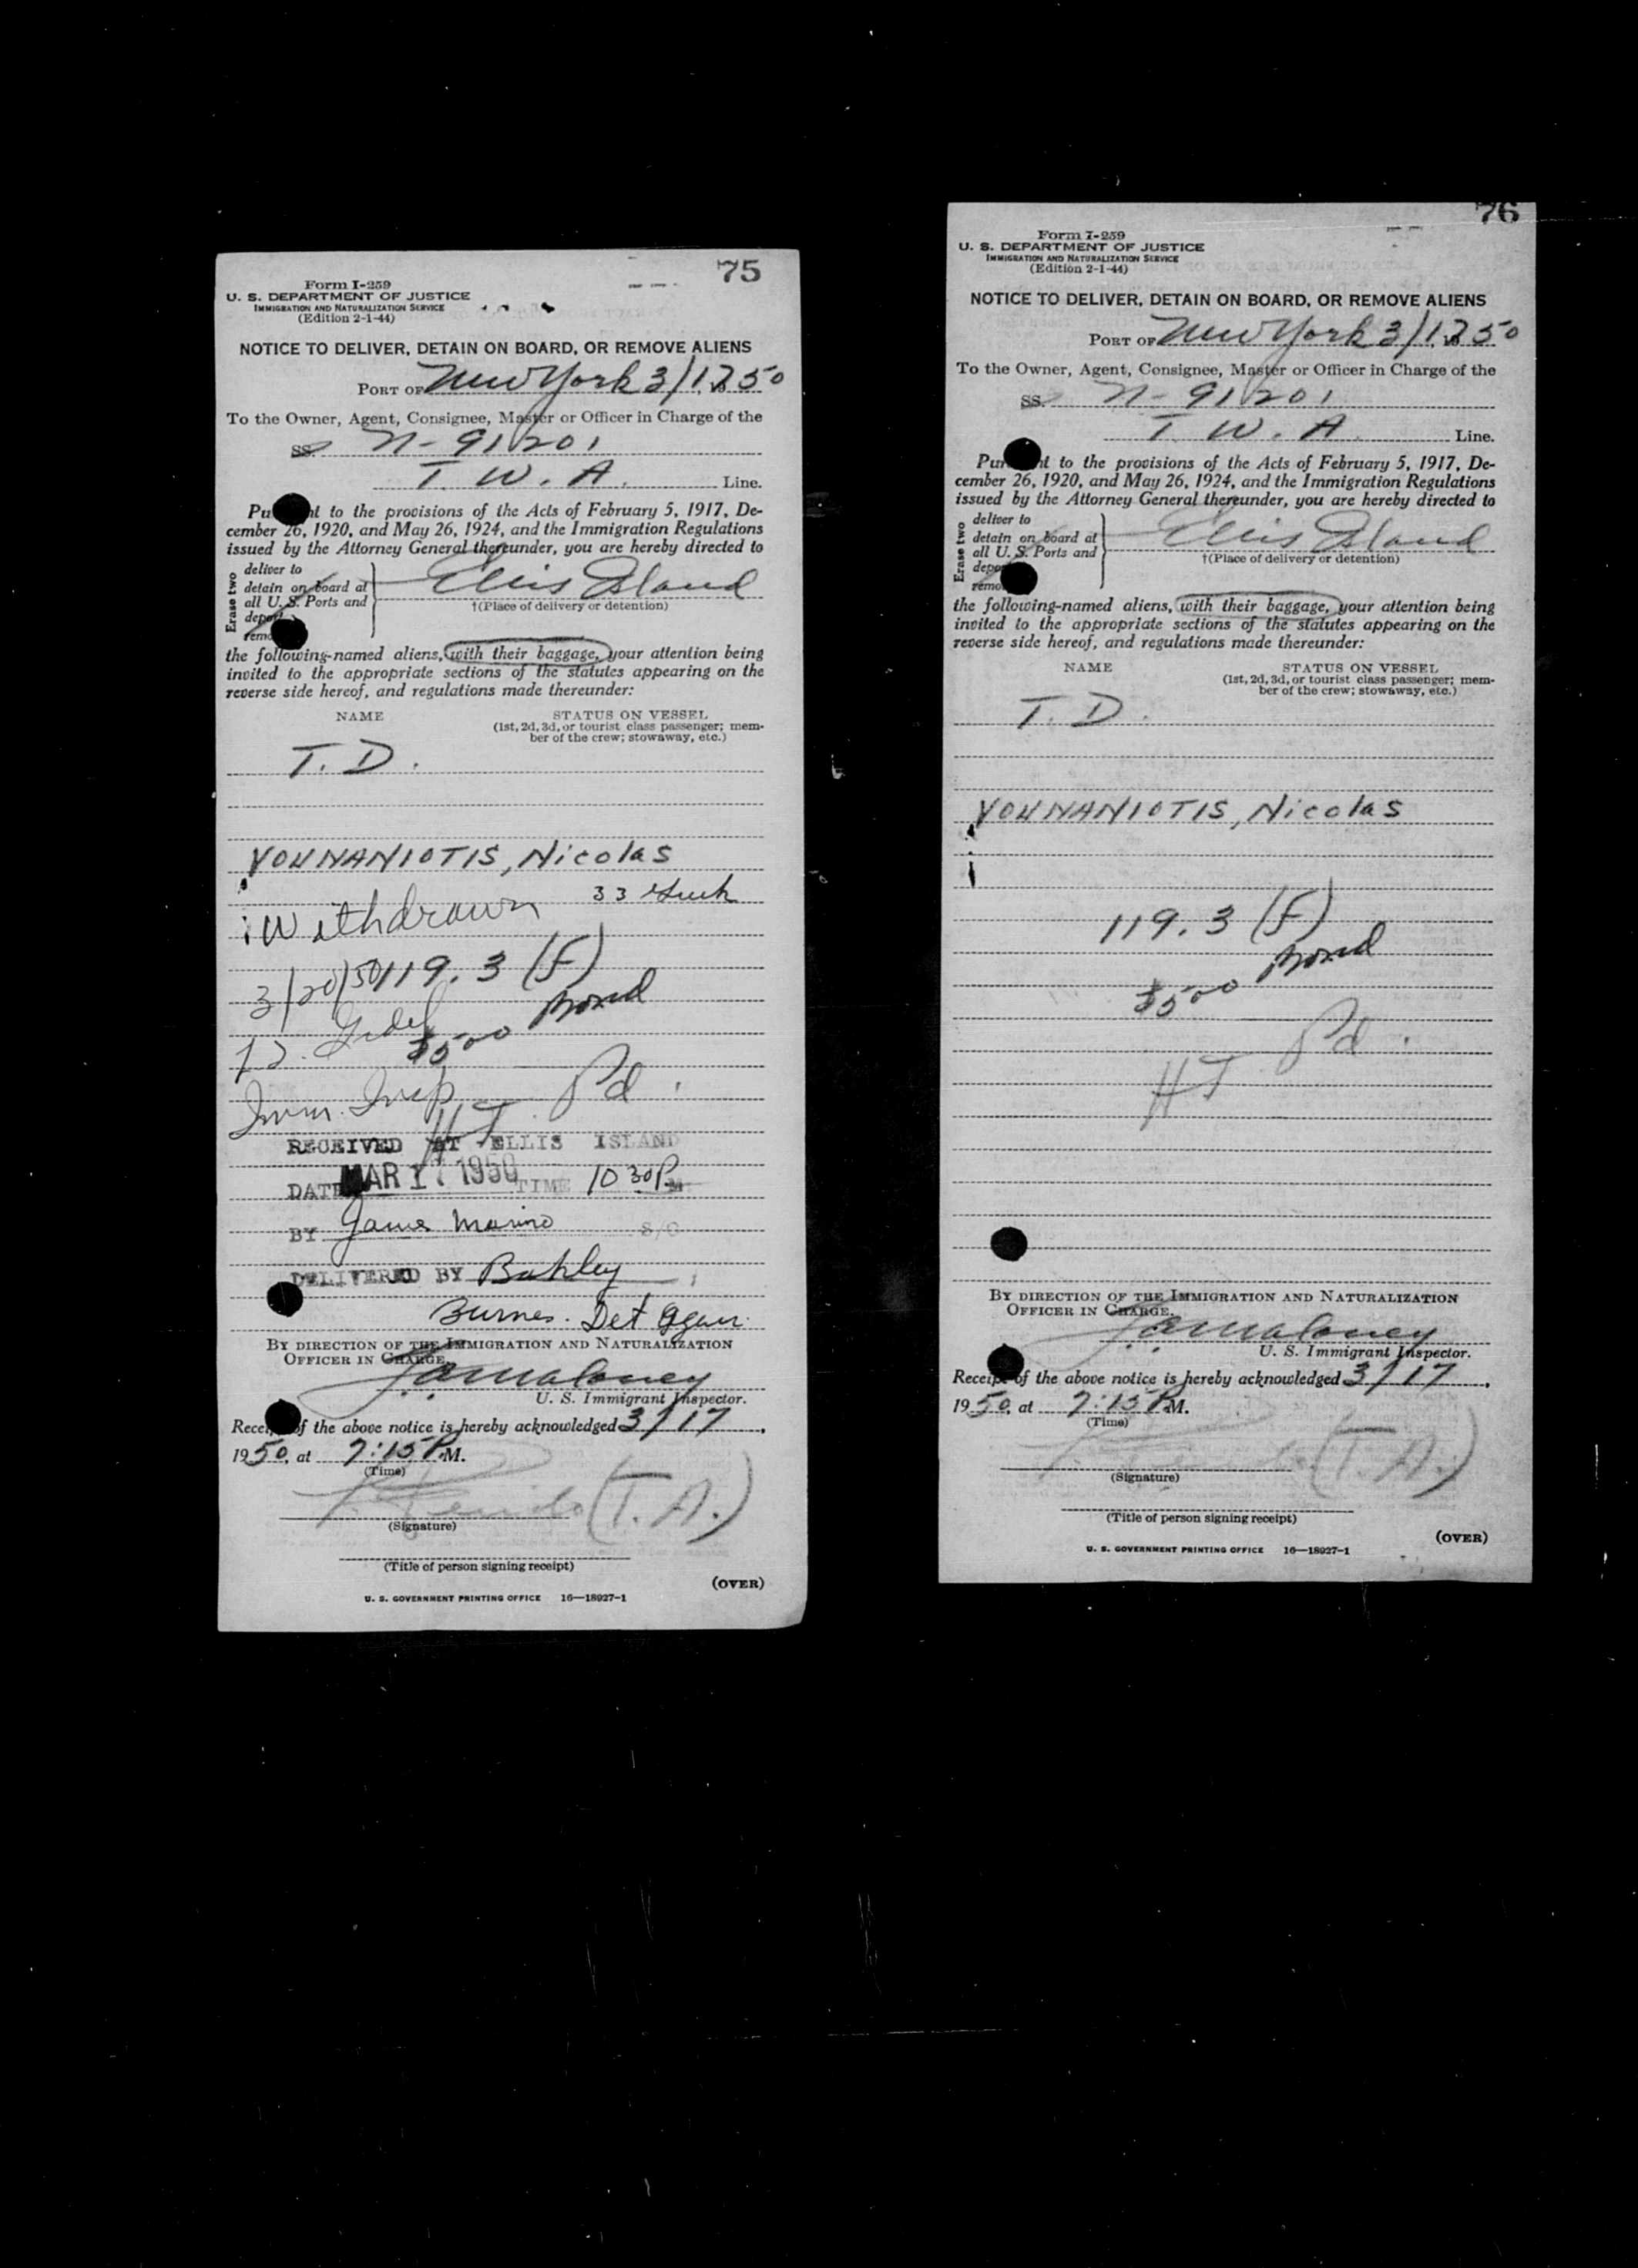 75
Form I-259
U. S. DEPARTMENT OF JUSTICE
IMMIGRATION AND NATURALIZATION SERVICE
(Edition 2-1-44)
NOTICE TO DELIVER, DETAIN ON BOARD, OR REMOVE ALIENS
PORT OF New York 3/17 50
To the Owner, Agent, Consignee, Master or Officer in Charge of the
SS. N-91201
T. W. A. Line.
Pu nt to the provisions of the Acts of February 5, 1917, De-
cember 26, 1920, and May 26, 1924, and the Immigration Regulations
issued by the Attorney General thereunder, you are hereby directed to
Erase two
deliver to
detain on board at
all U. S. Ports and
depor
remo
Ellis Island
†(Place of delivery or detention)
the following-named aliens, with their baggage, your attention being
invited to the appropriate sections of the statutes appearing on the
reverse side hereof, and regulations made thereunder:
NAME STATUS ON VESSEL
(1st, 2d, 3d, or tourist class passenger; mem-
ber of the crew; stowaway, etc.)
T. D.
VOUNANIOTIS, Nicolas
33
Withdrawn
3/20/50 119.3 (F)
$500 Bond
Pd.
Imm. Insp
HT
RECEIVED AT ELLIS ISLAND
DATE MAR 17 1950 TIME 10 30 P M
BY Marino S/O
DELIVERED BY
Burnes. Det
BY DIRECTION OF THE IMMIGRATION AND NATURALIZATION
OFFICER IN CHARGE.
Maloney
U. S. Immigrant Inspector.
Recei of the above notice is hereby acknowledged 3/17,
1950, at 7:15 P.M.
(Time)
(T.A.)
(Signature)
(Title of person signing receipt)
(OVER)
U. S. GOVERNMENT PRINTING OFFICE 16—18027-1
76
Form I-259
U. S. DEPARTMENT OF JUSTICE
IMMIGRATION AND NATURALIZATION SERVICE
(Edition 2-1-44)
NOTICE TO DELIVER, DETAIN ON BOARD, OR REMOVE ALIENS
PORT OF New York 3/17 50
To the Owner, Agent, Consignee, Master or Officer in Charge of the
SS. N-91201
T. W. A. Line.
Pur nt to the provisions of the Acts of February 5, 1917, De-
cember 26, 1920, and May 26, 1924, and the Immigration Regulations
issued by the Attorney General thereunder, you are hereby directed to
Erase two
deliver to
detain on board at
all U. S. Ports and
depo
remo
Ellis Island
†(Place of delivery or detention)
the following-named aliens, with their baggage, your attention being
invited to the appropriate sections of the statutes appearing on the
reverse side hereof, and regulations made thereunder:
NAME STATUS ON VESSEL
(1st, 2d, 3d, or tourist class passenger; mem-
ber of the crew; stowaway, etc.)
T. D.
VOUNANIOTIS, Nicolas
119.3 (F)
$500 Bond
Pd.
HT
BY DIRECTION OF THE IMMIGRATION AND NATURALIZATION
OFFICER IN CHARGE.
Maloney
U. S. Immigrant Inspector.
Receip of the above notice is hereby acknowledged 3/17,
1950, at 7:15 P.M.
(Time)
(T.A.)
(Signature)
(Title of person signing receipt)
(OVER)
U. S. GOVERNMENT PRINTING OFFICE 16—18027-1